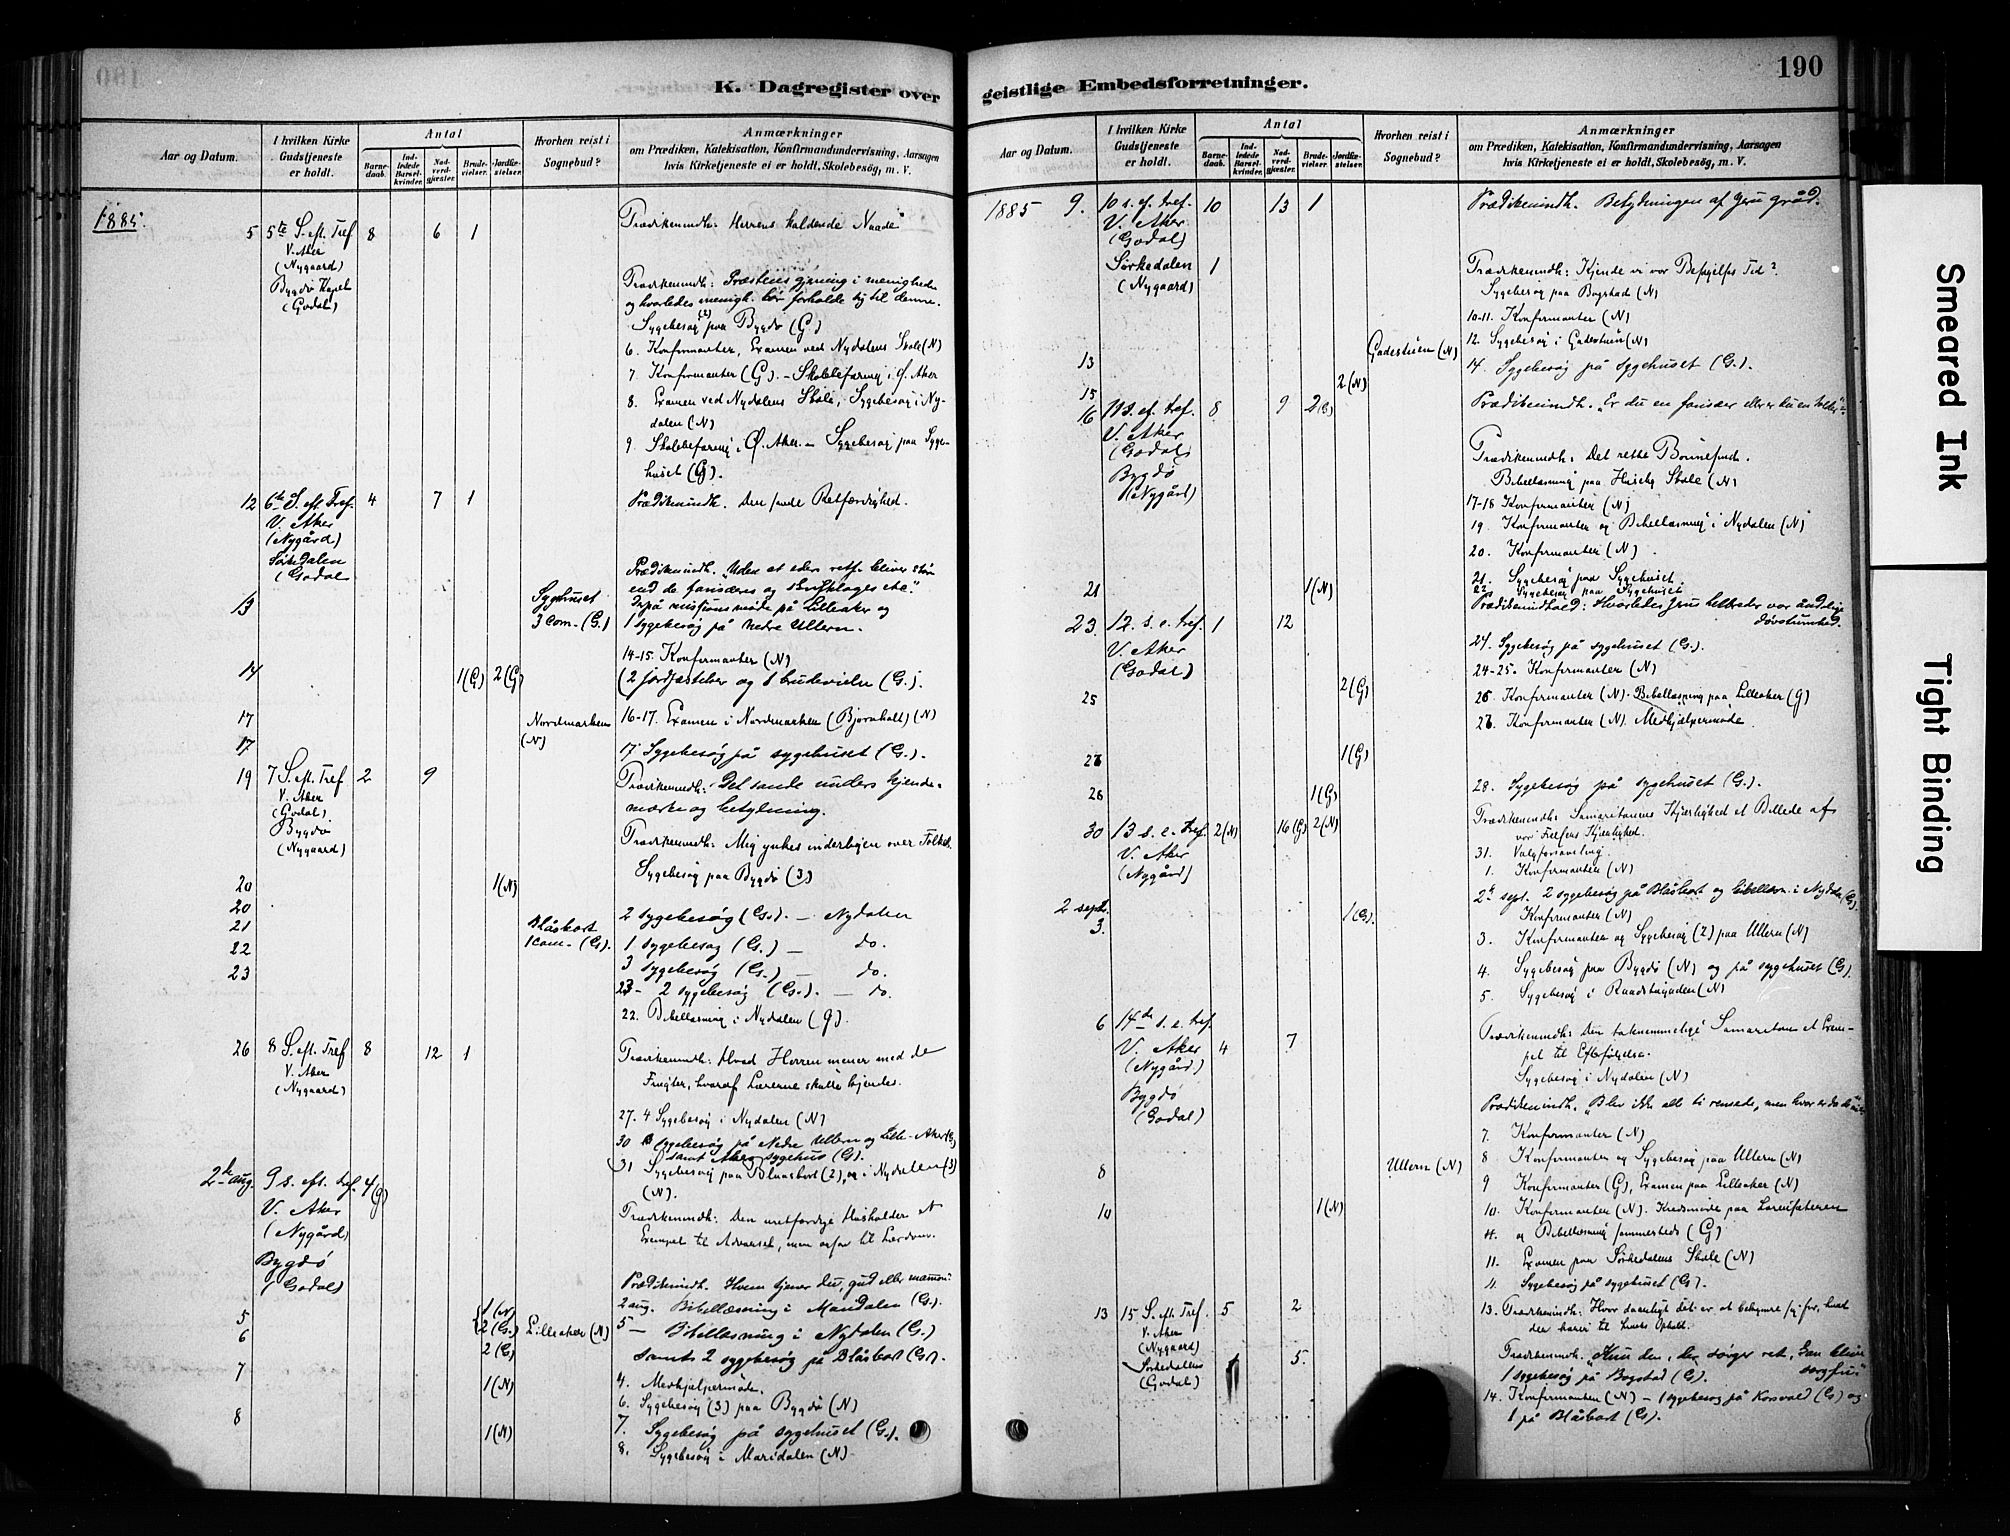 K. Dagregister over
Aar og Datum.
I hvilken Kirke
Gudstjeneste
er holdt.
Antal
Barne-
daab.
Ind-
ledede
Barsel-
kvinder.
Nad-
verd-
gjæster.
Brude-
vielser.
Jordfæ-
stelser.
Hvorhen reist i
Sognebud?
Anmærkninger
om Prædiken, Katekisation, Konfirmandundervisning, Aarsagen
hvis Kirketjeneste ei er holdt, Skolebesøg, m. V.
1885.
5 5te S. eft. Tref 8 6 1 Prædikenindh: Herrens kaldende Naade
V. Aker
(Nygaard)
Bygdø Kapel
(Godal)
Prædikenindh: Præstens gjerning i menigheden
og hvorledes menigh. bør forholde sig til denne.
Sygebesøg (2) paa Bygdø (G)
6. Konfirmanter, Examen ved Nydalens Skole (N)
7. Konfirmanter (G). – Skolebefaring i Ø. Aker
8. Examen ved Nydalens Skole, Sygebesøg i Ny-
dalen (N)
9. Skolebefaring i Ø. Aker. – Sygebesøg paa Syge-
huset (G).
12 6te S. eft. Tref. 4 7 1 Prædikenindh. Den sande Retfærdighed.
V. Aker
(Nygård)
Sørkedalen
(Godal
Prædikenindh. "Uden at eders retf. bliver større
end de farisæeres og
13 Sygehuset
3 com. (G.)
missionsmøde på Lilleaker og
1 sygebesøg på nedre Ullern.
14-15. Konfirmanter (N)
14 1(G) 2(G) (2 jordfæstelser og 1 brudevielse (G.).
17 Nordmarken
(N)
16-17. Examen i Nordmarken (Bjørnholt) (N)
17 17. Sygebesøg på sygehuset (G.).
19 7 S. eft. Tref 2 9 Prædikenindh: Det sande
V. Aker
(Godal)
Bygdø
(Nygaard)
mærke og betydning.
Prædikenindh: Mig ynkes inderligen over Folket.
Sygebesøg paa Bygdø (3)
20 1(N)
20 2 sygebesøg (G.). – Nydalen
21 Blåsbort
1 com. (G).
1 sygebesøg (G.) – do.
22 3 sygebesøg (G.) – do.
23 23 – 2 sygebesøg (G.). – do.
22. Bibellæsning i Nydalen (G).
26 8 S. eft. Tref 8 12 1 Prædikenindh: Hvad Herren mener med de
V. Aker
(Nygaard)
Frugter, hvoraf Lærerne skulle kjendes.
27. 4 Sygebesøg i Nydalen (N)
30 sygebesøg på Nedre Ullern og Lille-Aker (G)
samt Akers sygehus (G).
31 Sygebesøg paa Blaasbort (2), og i Nydalen (3)
(N).
2de aug. 9 s. eft. tref. 4(G)
V. Aker
(Nygård)
Prædikenindh: Den uretfærdige Husholder et
Exempel til Advarsel, men ogsaa til Lærdom.
Bygdø
(Godal)
Prædikenindh. Hvem tjener du, gud eller mamon?
2 aug. Bibellæsning i Maridalen (G.).
5 1(N)
2(G.) Lilleaker (N) 5 – Bibellæsning i Nydalen (G.)
6 2(G) samt 2 sygebesøg på Blåsbort (G).
7 1(N) 4. Medhjælpermøde.
6. Sygebesøg (3) paa Bygdø (N)
8 1(N) 7. Sygebesøg på sygehuset (G.).
8. Sygebesøg i Maridalen (N)
geistlige Embedsforretninger.
190
Aar og Datum.
I hvilken Kirke
Gudstjeneste
er holdt.
Antal
Barne-
daab.
Ind-
ledede
Barsel-
kvinder.
Nad-
verd-
gjæster.
Brude-
vielser.
Jordfæ-
stelser.
Hvorhen reist i
Sognebud?
Anmærkninger
om Prædiken, Katekisation, Konfirmandundervisning, Aarsagen
hvis Kirketjeneste ei er holdt, Skolebesøg, m. V.
1885 9. 10 s. ef. tref. 10 13 1 Prædikenindh. Betydningen af Jesu gråd.
V. Aker
(Godal)
Sørkedalen 1
(Nygaard)
Prædikenindh: Kjende vi vor Besøgelses Tid?
Sygebesøg paa Bogstad (N)
10-11. Konfirmanter (N)
12. Sygebesøg i Gadestuen (N)
13 Gadestuen (N)
14. Sygebesøg på sygehuset (G.).
15 2(N)
16 11 s. ef. tref. 8 9 2(G) Prædikenindh. "Er du en farisæer eller er du en tolder"?
V. Aker
(Godal)
Bygdø
(Nygård)
Prædikenindh: Det rette Bønnesind.
Bibellæsning paa Huseby Skole (N)
17-18 Konfirmanter (N)
19. Konfirmanter og Bibellæsning i Nydalen (N)
20. Konfirmanter (N).
21. Sygebesøg paa Sygehuset.
21 1(N) 22. Sygebesøg paa Sygehuset
Prædikenindhold: Hvorledes Jesus helbreder vor åndelige
døvstumhed.
23. 12. s. e. tref. 1 12
V. Aker
(Godal)
24. Sygebesøg på sygehuset (G.).
24-25. Konfirmanter (N)
25 2(G) 26. Konfirmanter (N). Bibellæsning paa Lilleaker (G)
Konfirmanter (N). Medhjælpermøde.
1(G)
28. Sygebesøg på sygehuset (G.).
1(G)
30 13 s. e. tref. 2(N) 16(G) 2(N) Prædikenindh: Samaritanens Kjærlighed et Billede af
vor Frelsers Kjærlighed.
V. Aker
(Nygård)
31. Valgforsamling.
1. Konfirmanter (N)
2 sept. 1(G). 2de sept. 2 sygebesøg på Blåsbort og bibellæsn. i Nydalen (G).
Konfirmanter (N)
3. 3. Konfirmanter og Sygebesøg (2) paa Ullern (N)
4. Sygebesøg paa Bygdø (N) og på sygehuset (G).
5. Sygebesøg i Raadhusgaden (N)
6 14de s. e. tref.
V. Aker 4 7 Prædikenindh: Den taknemmelige Samaritan et Exem-
pel til Efterfølgelse.
(Nygård.)
Sygebesøg i Nydalen (N)
Bygdø
(Godal)
Prædikenindh. "Blev ikke alle ti rensede, men hvor er de
7. Konfirmanter (N)
8 Ullern (N) 8 Konfirmanter og Sygebesøg paa Ullern (N)
9 Konfirmanter (G), Examen paa Lilleaker (N)
10 1(N) 10. Konfirmanter (N). Kredsmøde paa
og Bibellæsning sammesteds (G)
11. Examen paa Sørkedalens Skole (N)
11. Sygebesøg på sygehuset (G).
13 15 S. eft. Tref. 5 2 13. Prædikenindh: Hvor daarligt det er at bekymre sig for, hvad
der hører til Livets Ophold.
V. Aker
(Nygaard)
Sørkedalen 1 5.
(Godal)
Prædikenindh: "Kun den, der sørger ret, kan blive
sorgfri."
1 sygebesøg på Bogstad (G).
14. Konfirmanter (N) – 1 sygebesøg på Korsvold (G) og
1 på Blåsbort (G).
Smeared Ink
Tight Binding